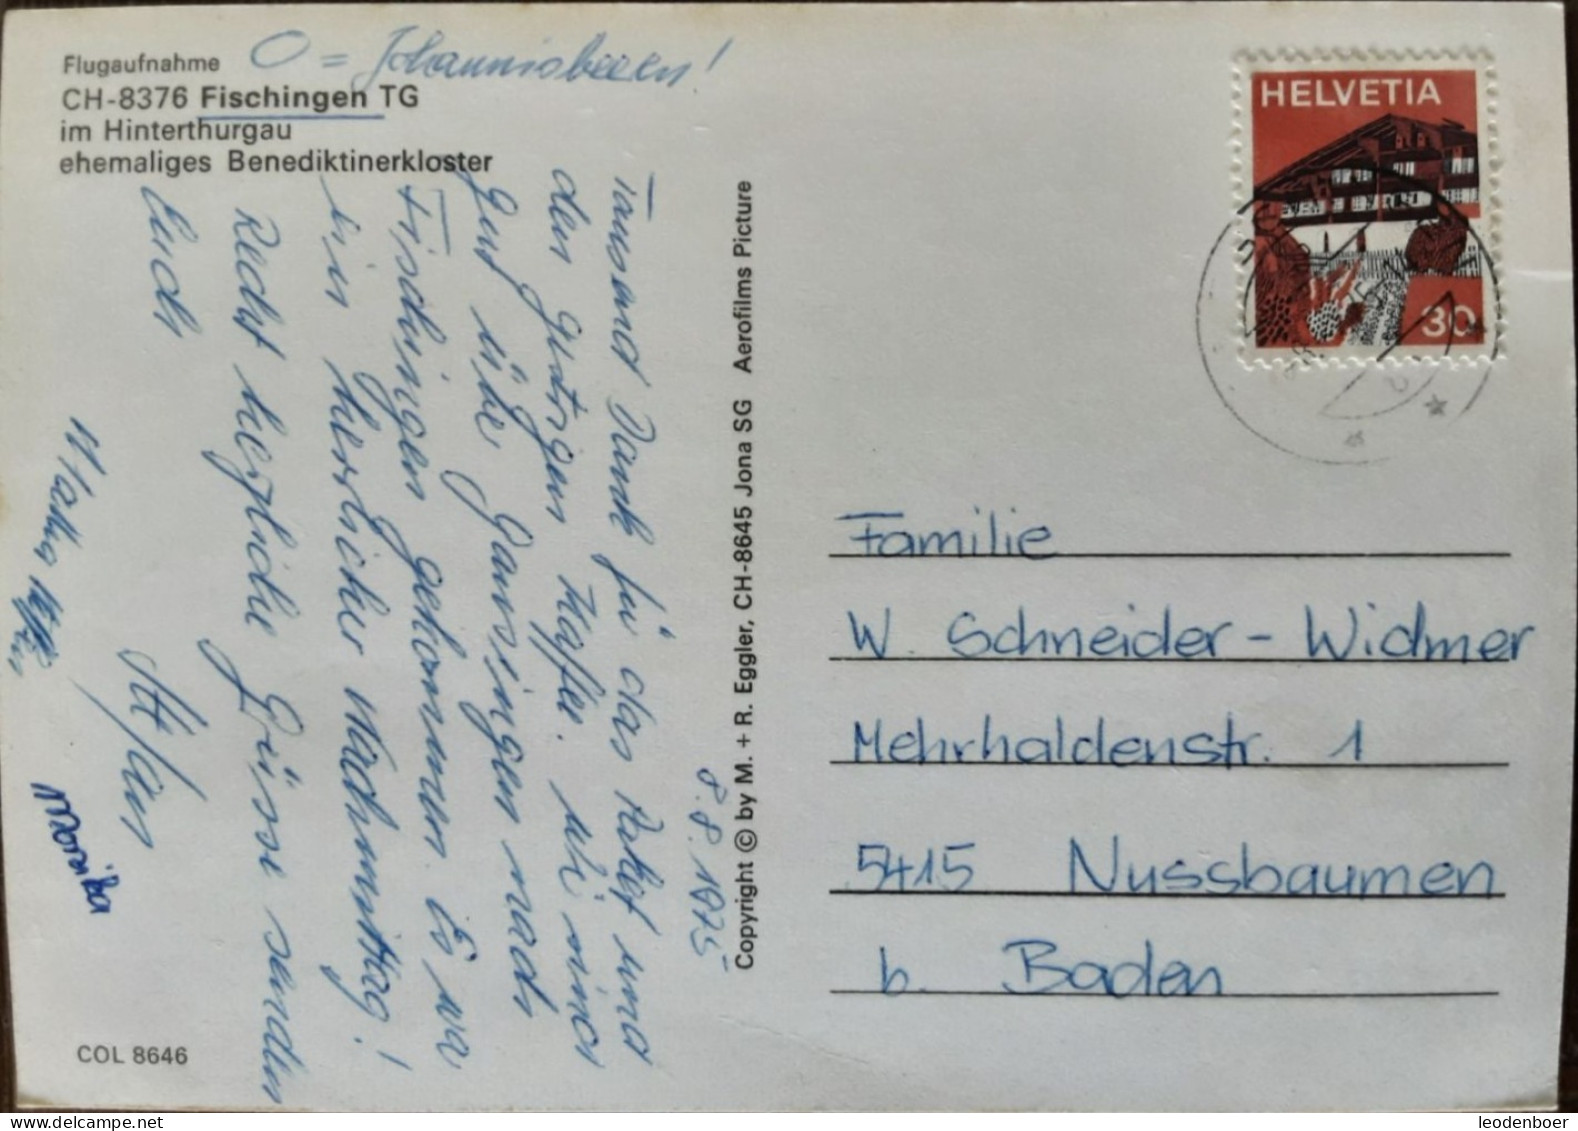 O = Johannisbeeren!
Flugaufnahme
CH-8376 Fischingen TG
im Hinterthurgau
ehemaliges Benediktinerkloster
8.8.1975
Tausend Dank für das Asyl und
den gestrigen Kaffee. Wir sind
gut über Gansingen nach
Fischingen gekommen. Es wa
ein herrlicher Nachmittag!
Recht herzliche Grüsse senden
Euch
Martha
Monika
COL 8646
Copyright © by M. + R. Eggler, CH-8645 Jona SG Aerofilms Picture
HELVETIA
30
Familie
W. Schneider-Widmer
Mehrhaldenstr. 1
5415 Nussbaumen
b. Baden
leodenboer